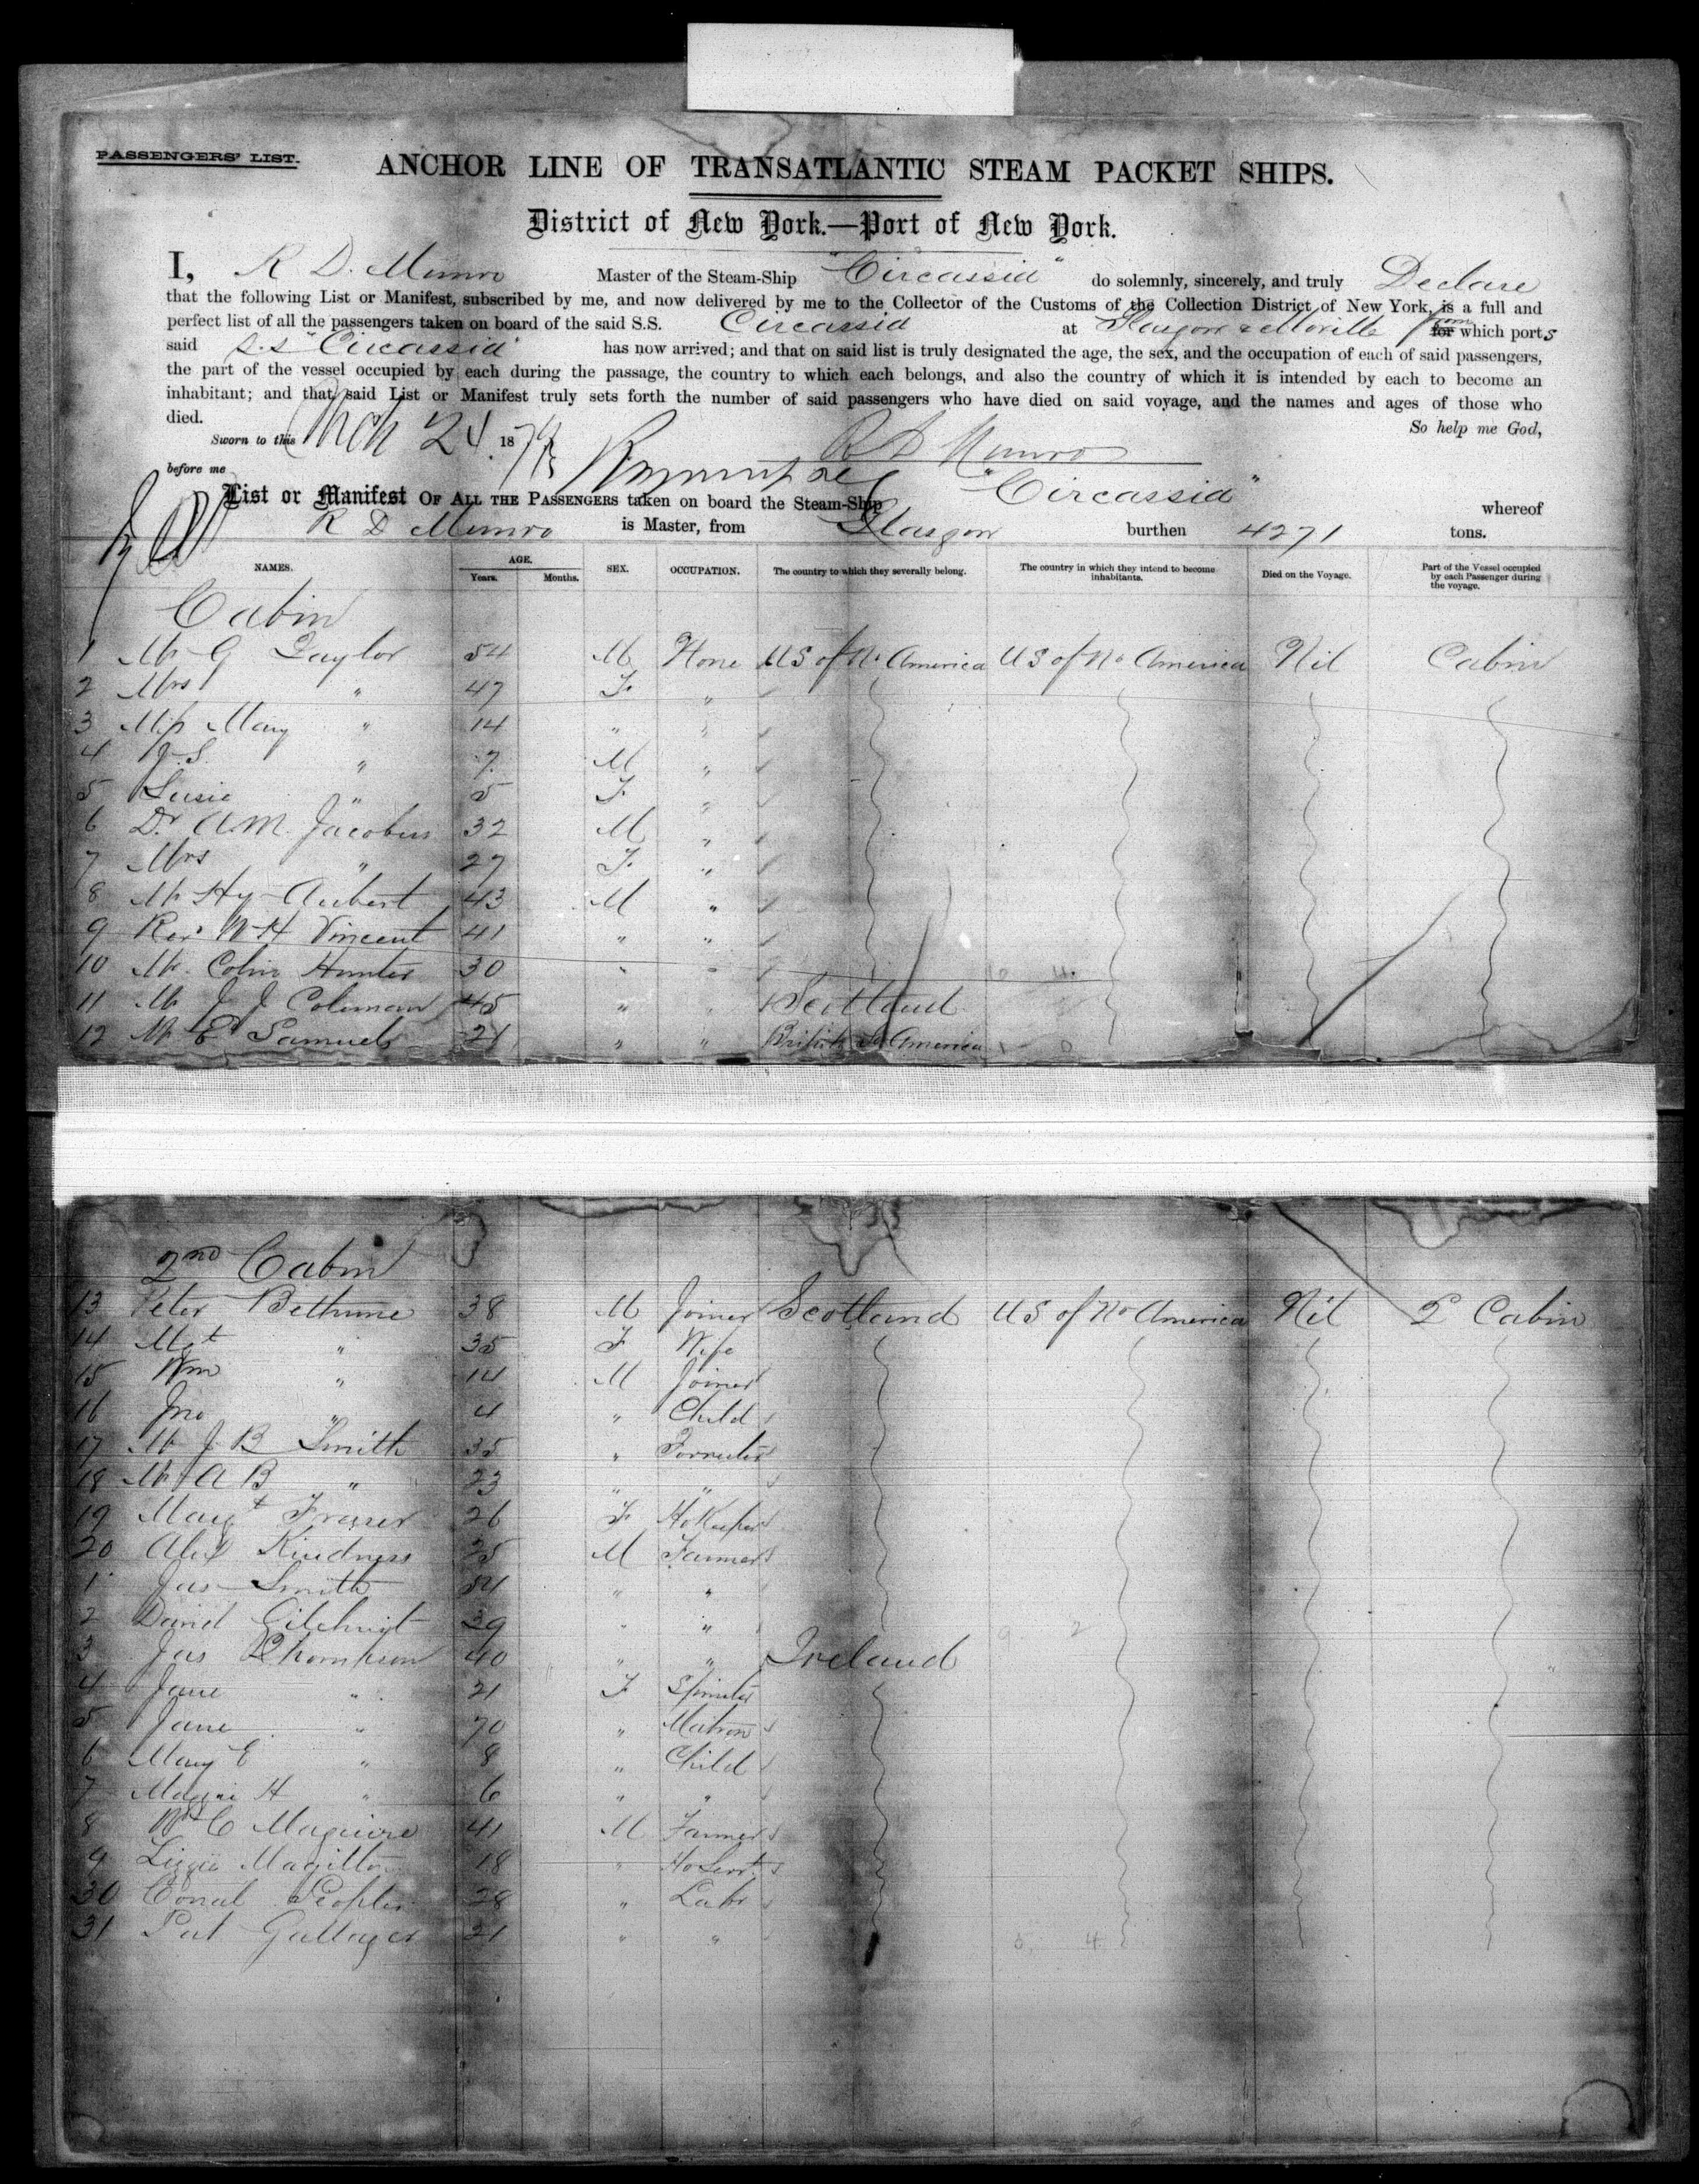 PASSENGERS' LIST.
ANCHOR LINE OF TRANSATLANTIC STEAM PACKET SHIPS.
District of New York.—Port of New York.
I, R D. Munro Master of the Steam-Ship "Circassia" do solemnly, sincerely, and truly Declare
that the following List or Manifest, subscribed by me, and now delivered by me to the Collector of the Customs of the Collection District of New York, is a full and
perfect list of all the passengers taken on board of the said S.S. Circassia at Glasgow & Moville from for which ports
said S.S "Circassia" has now arrived; and that on said list is truly designated the age, the sex, and the occupation of each of said passengers,
the part of the vessel occupied by each during the passage, the country to which each belongs, and also the country of which it is intended by each to become an
inhabitant; and that said List or Manifest truly sets forth the number of said passengers who have died on said voyage, and the names and ages of those who
died. So help me God,
Sworn to this Mch 24 1879 R D Munro
before me
List or Manifest OF ALL THE PASSENGERS taken on board the Steam-Ship "Circassia" whereof
R D Munro is Master, from Glasgow burthen 4271 tons.
NAMES. AGE. Years. Months. SEX. OCCUPATION. The country to which they severally belong. The country in which they intend to become inhabitants. Died on the Voyage. Part of the Vessel occupied by each Passenger during the voyage.
Cabin
1 Mr G Taylor 54 M None US of No America US of No America Nil Cabin
2 Mrs " 47 F "
3 Miss Mary " 14 " "
4 J. S. " 7 M "
5 Susie " 5 F "
6 Dr A. M. Jacobus 32 M "
7 Mrs " 27 F "
8 Mr Hy Aubert 43 M "
9 Rev W H Vincent 41 " "
10 Mr. Colin Hunter 30 " "
11 Mr J J Coleman 45 " " Scotland
12 Mr E Samuels 21 " " British So America
2nd Cabin
13 Peter Bethune 38 M Joiner Scotland US of No America Nil 2 Cabin
14 Mgt " 35 F Wife
15 Wm " 14 M Joiner
16 Jno " 4 " Child
17 Mr J B Smith 35 "
18 Mr A B " 23 " "
19 Margt Fraser 26 F HoKeeper
20 Alex Kindness 25 M Farmer
1 Jas Smith 54 " "
2 David Gilchrist 39 " "
3 Jas Thompson 40 " " Ireland
4 Jane " 21 F Spinster
5 Jane " 70 " Matron
6 Mary E " 8 " Child
7 Maggie H " 6 " "
8 Wm C Maguire 41 M Farmer
9 Lizzie Magilton 18 " Ho Servt
30 Conal Peoples 28 " Labr
31 Pat Gallager 21 " "